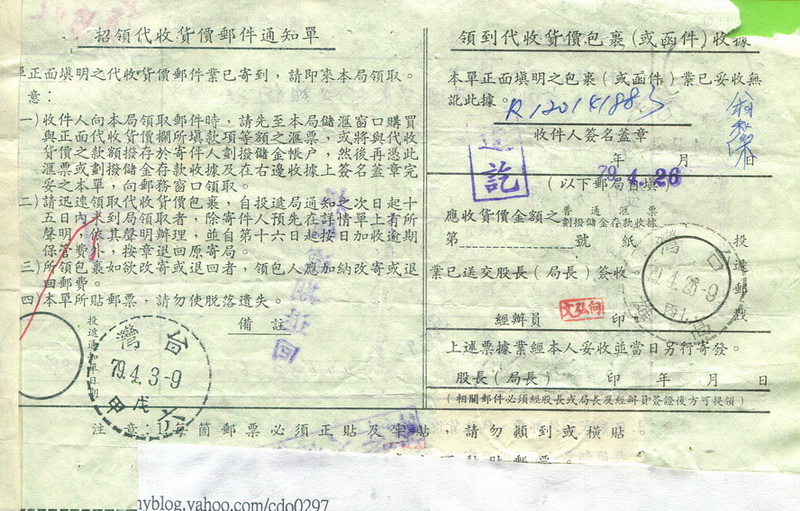 招領代收貨價郵件通知單
單正面填明之代收貨價郵件業已寄到,請即來本局領取。
意:
一)收件人向本局領取郵件時,請先至本局儲滙窗口購買
與正面代收貨價欄所填款項等額之滙票,或將與代收
貨價之款額撥存於寄件人劃撥儲金帳户,然後再憑此
滙票或劃撥儲金存款收據及在右邊收據上簽名蓋章完
妥之本單,向郵務窗口領取。
二)請迅速領取代收貨價包裹,自投遞局通知之次日起十
五日內未到局領取者,除寄件人預先在詳情單上有所
聲明,依其聲明辦理,並自第十六日起按日加收逾期
保管費外,按章退回原寄局。
三)所領包裹如欲改寄或退回者,領包人應加納改寄或退
回郵費。
四)本單所貼郵票,請勿使脫落遺失。
備註
投遞通知單日期
台灣
79.4.3-9
領到代收貨價包裹(或函件)收據
本單正面填明之包裹(或函件)業已妥收無
訛此據。
R120141883
收件人簽名蓋章
年 月 日
訖
79.4.26
(以下郵局自填)
應收貨價金額之普通滙票
劃撥儲金存款收據
第 號 紙
業已送交股長(局長)簽收。
投遞郵戳
台灣
79.4.26-9
經辦員 印
上述票據業經本人妥收並當日另行寄發。
股長(局長) 印 年 月 日
(相關郵件必須經股長或局長及經辦員簽證後方可提領)
注 意:1)每箇郵票必須正貼及牢貼,請勿顛到或橫貼。
myblog.yahoo.com/cdo0297